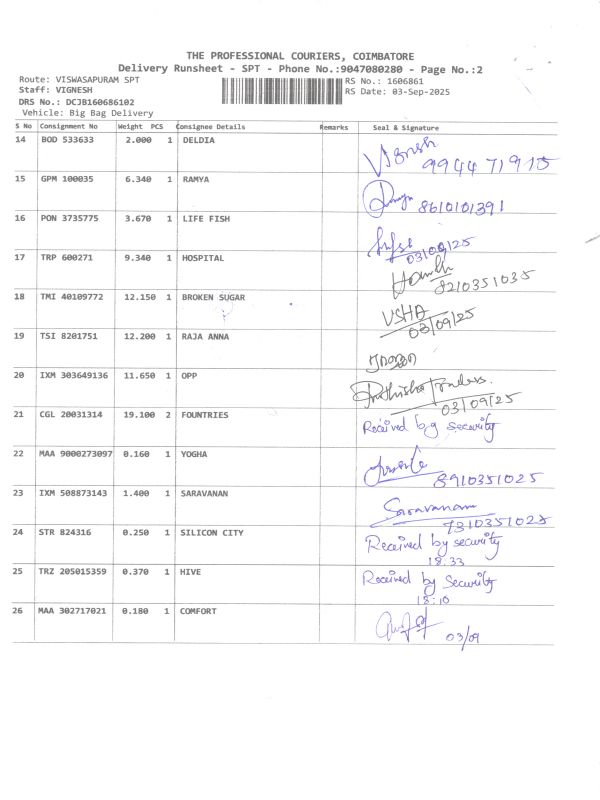 THE PROFESSIONAL COURIERS, COIMBATORE
Delivery Runsheet - SPT - Phone No.:9047080280 - Page No.:2
Route: VISWASAPURAM SPT RS No.: 1606861
Staff: VIGNESH RS Date: 03-Sep-2025
DRS No.: DCJB160686102
Vehicle: Big Bag Delivery
S No Consignment No Weight PCS Consignee Details Remarks Seal & Signature
14 BOD 533633 2.000 1 DELDIA Vignesh
9944471915
15 GPM 100035 6.340 1 RAMYA 8610101391
16 PON 3735775 3.670 1 LIFE FISH
03/09/25
17 TRP 600271 9.340 1 HOSPITAL
8210351035
18 TMI 40109772 12.150 1 BROKEN SUGAR USHA
03/09/25
19 TSI 8201751 12.200 1 RAJA ANNA
20 IXM 303649136 11.650 1 OPP
03/09/25
21 CGL 20031314 19.100 2 FOUNTRIES Received by security
22 MAA 9000273097 0.160 1 YOGHA
8910351025
23 IXM 508873143 1.400 1 SARAVANAN Saravanam
7310351025
24 STR 824316 0.250 1 SILICON CITY Received by security
18:33
25 TRZ 205015359 0.370 1 HIVE Received by Security
18:10
26 MAA 302717021 0.180 1 COMFORT
03/09